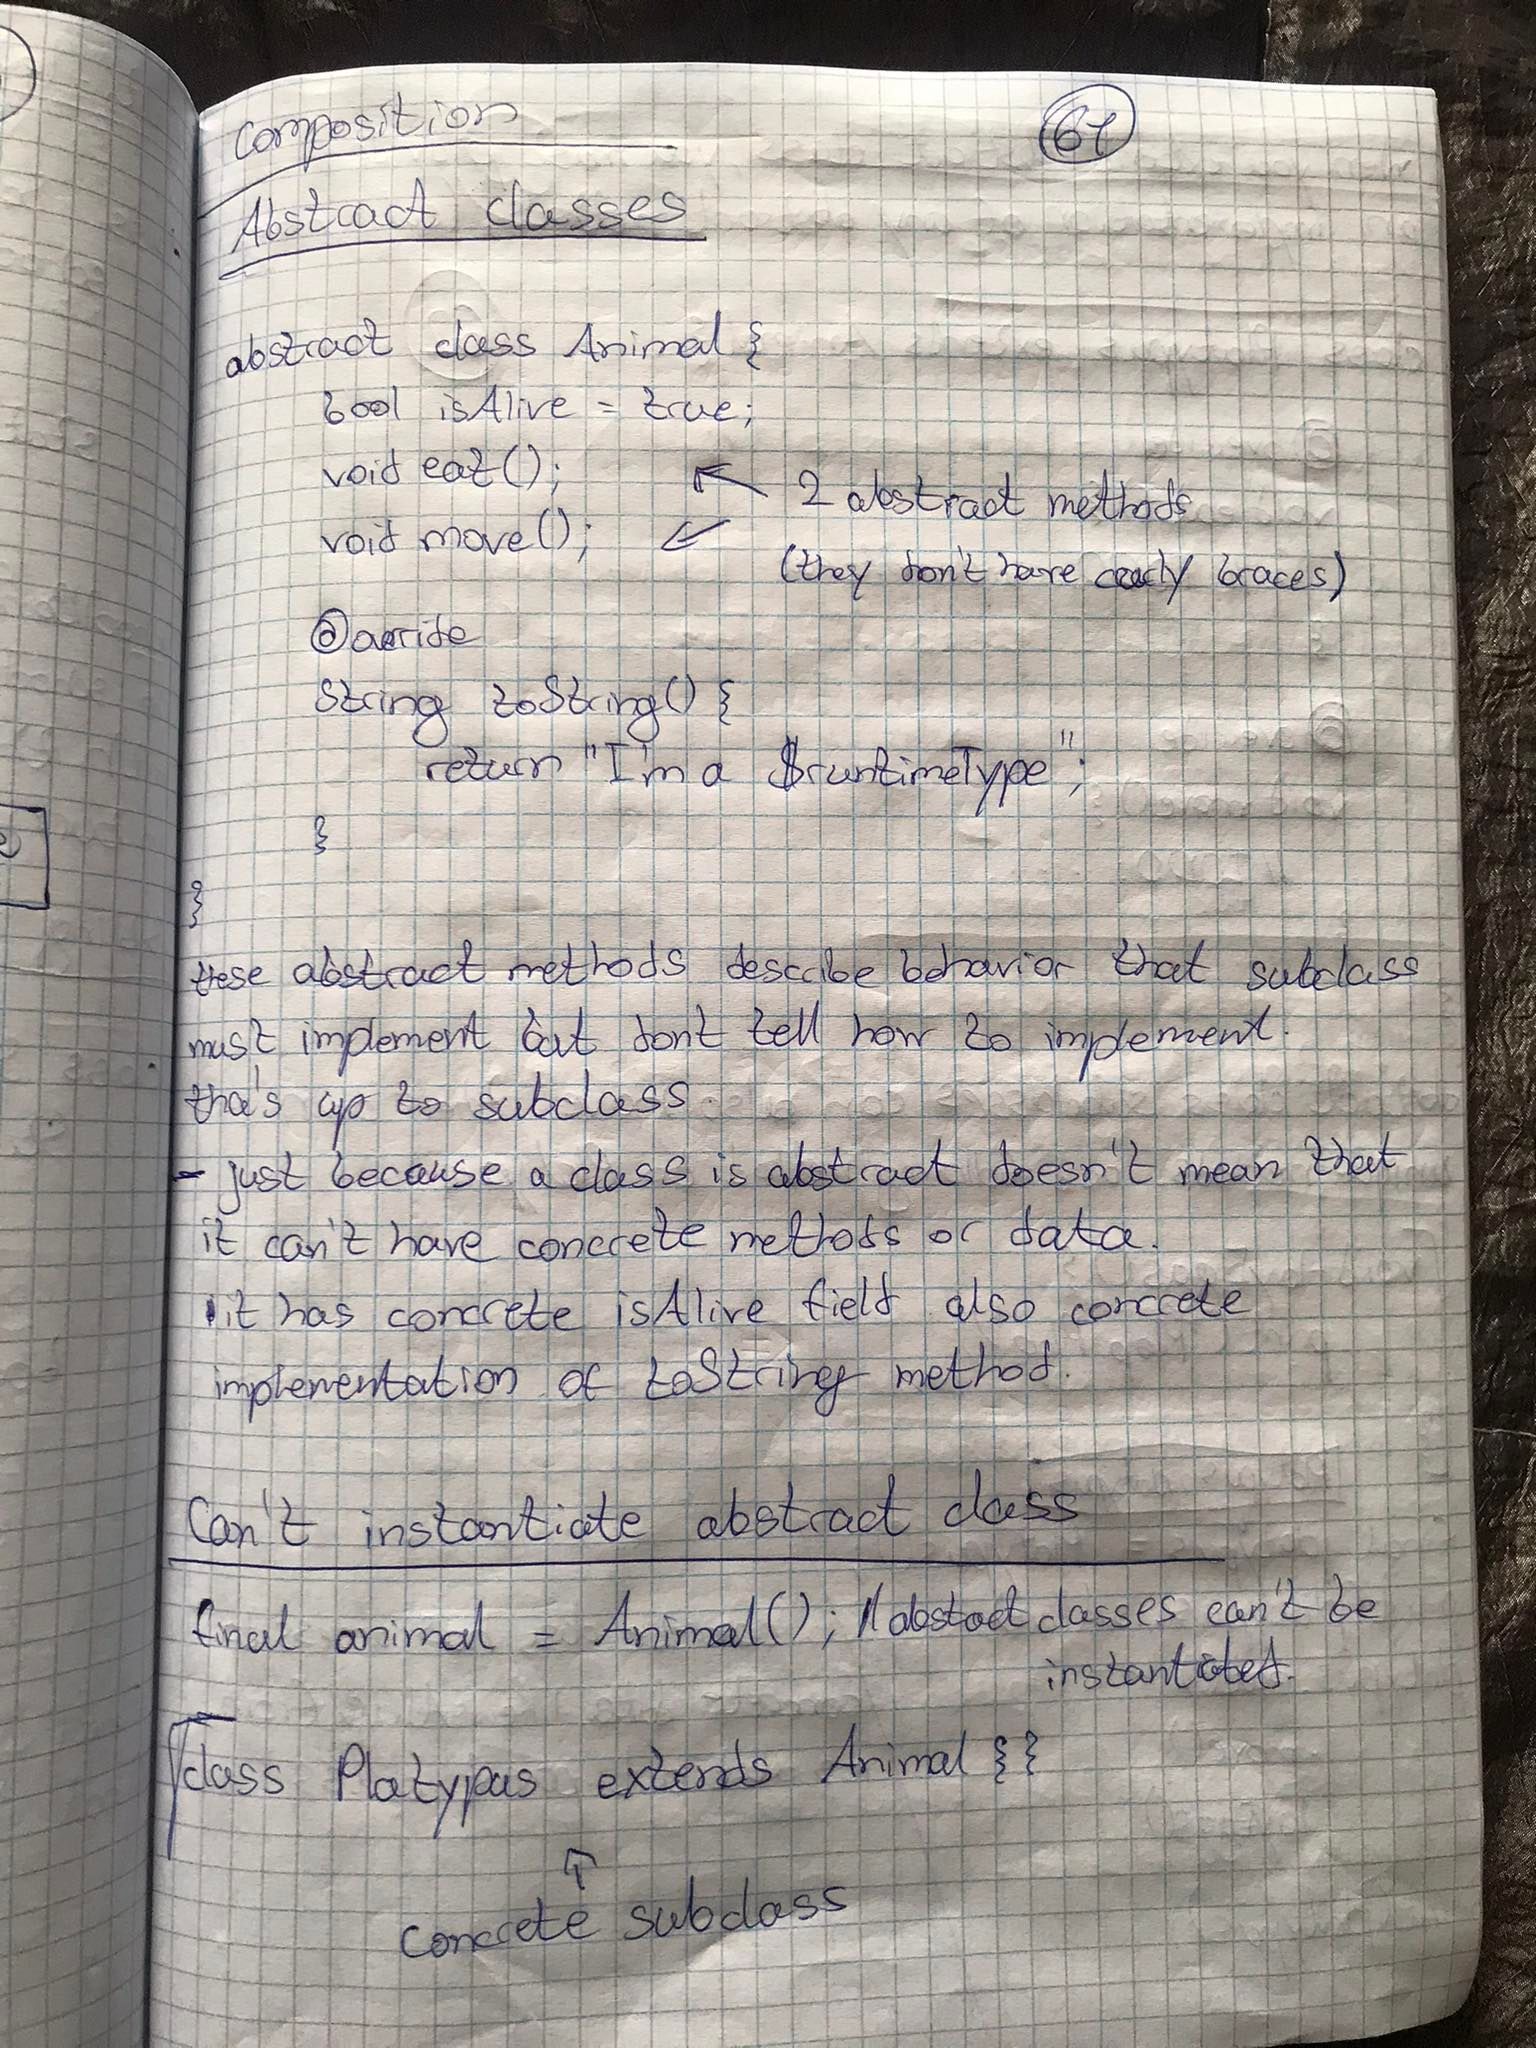 Composition
61
Abstract classes
abstract class Animal {
bool isAlive = true;
void eat();
2 abstract methods
void move();
(they don't have curly braces)
@override
String toString() {
return "I'm a $runtimeType";
}
}
these abstract methods describe behavior that subclass
must implement but dont tell how to implement.
tha's up to subclass.
- just because a class is abstract doesn't mean that
it can't have concrete methods or data.
it has concrete isAlive field also concrete
implementation of toString method.
Can't instantiate abstract class
final animal = Animal(); // abstract classes can't be
instantiated.
class Platypus extends Animal { }
concrete subclass